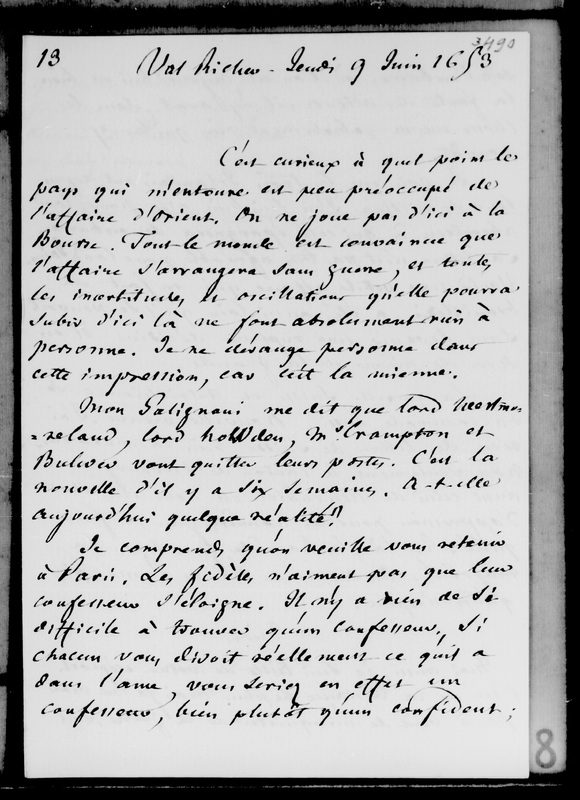 3490
13
Val Richer - Jeudi 9 Juin 1853
C'est curieux à quel point le
pays qui m'entoure est peu préoccupé de
l'affaire d'Orient. On ne joue pas d'ici à la
Bourse. Tout le monde est convaincu que
l'affaire s'arrangera sans guerre, et toutes
les incertitudes et oscillations qu'elle pourra
subir d'ici là ne font absolument rien à
personne. Je ne dérange personne dans
cette impression, car c'est la mienne.
Mon Galignani me dit que lord Westmo-
=reland, lord howden, Mr Crampton et
Bulwer vont quitter leurs postes. C'est la
nouvelle d'il y a six semaines. A-t-elle
aujourd'hui quelque réalité?
Je comprends qu'on veuille vous retenir
à Paris. Les fidèles n'aiment pas que leur
confesseur s'éloigne. Il n'y a rien de si
difficile à trouver qu'un confesseur. Si
chacun vous disoit réellement ce qu'il a
dans l'ame, vous seriez en effet un
confesseur, bien plutôt qu'un confident;
8